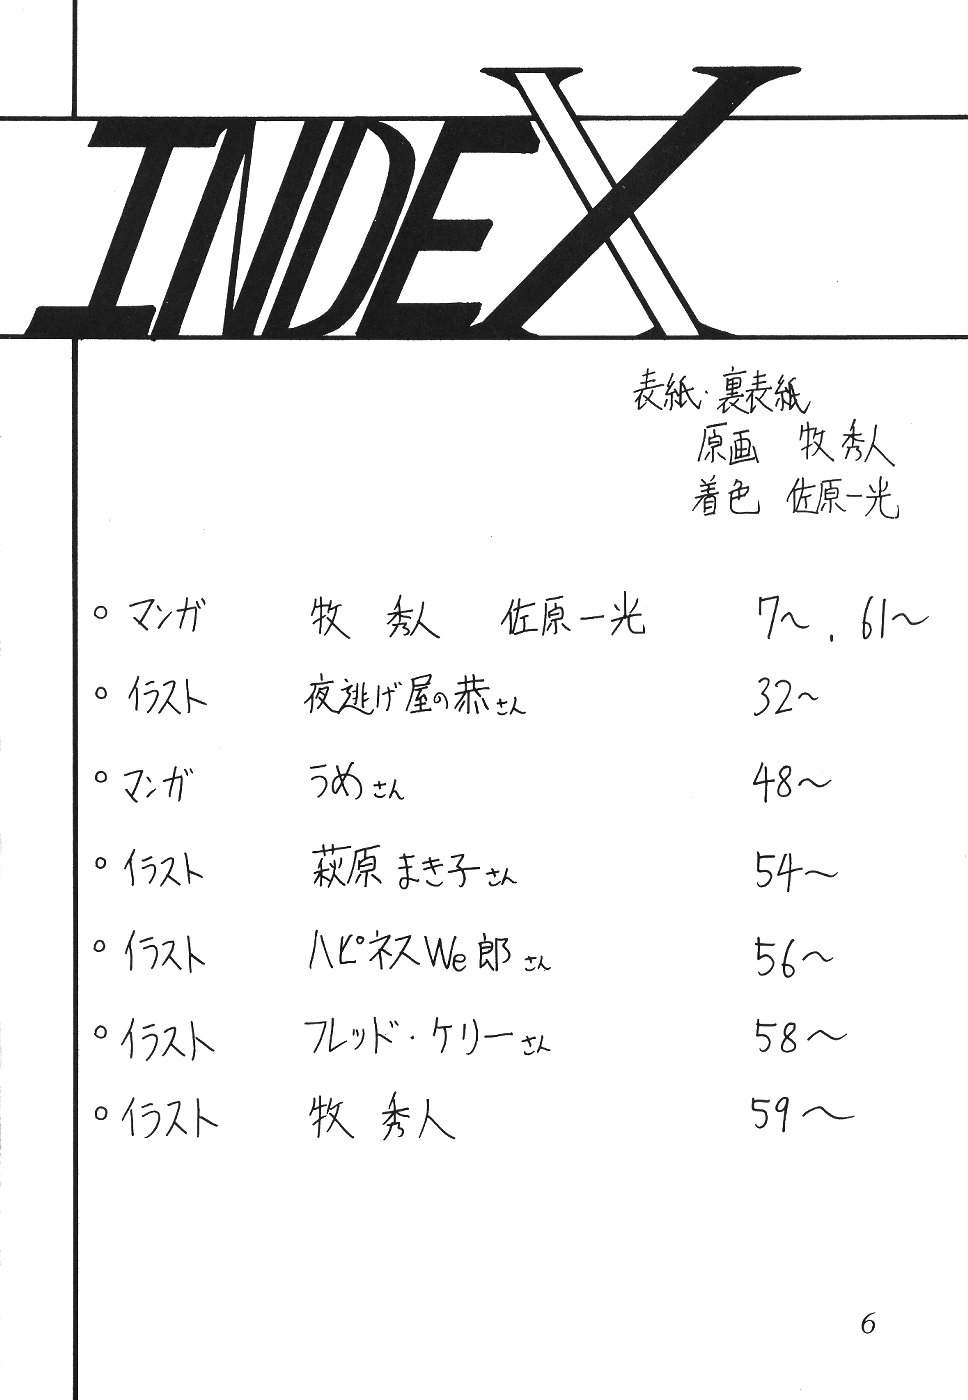 INDEX
表紙・裏表紙
原画 牧 秀人
着色 佐原一光
○ マンガ 牧 秀人 佐原一光 7〜.61〜
○ イラスト 夜逃げ屋の恭さん 32〜
○ マンガ うめさん 48〜
○ イラスト 萩原まき子さん 54〜
○ イラスト ハピネスWe郎さん 56〜
○ イラスト フレッド・ケリーさん 58〜
○ イラスト 牧 秀人 59〜
6